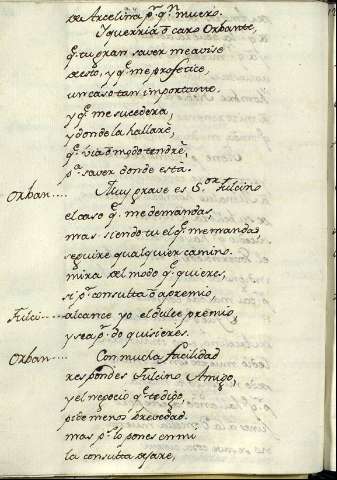 de Arcelina p.r q.n muero.
Y querria ò caro Orbante,
q. tu gran saver me avise
de esto, y q. me profetice,
un caso tan importante.
y q. me sucedera,
y donde la hallarè,
q. via ò modo tendrè,
p.a saver donde està.
Orban.... Muy grave es S.or Fulcino
el caso q. me demandas,
mas siendo tu el q. me mandas
seguire qualquier camino.
mira del modo q. quieres,
si p.r consulta ò apremio,
Fulci.... alcance yo el dulce premio
y sea p.r do quisieres.
Orban.... Con mucha facilidad
respondes Fulcino Amigo,
y el negocio q. te digo,
pide menos brevedad.
mas p.s lo pones en mi
la consulta dejare,